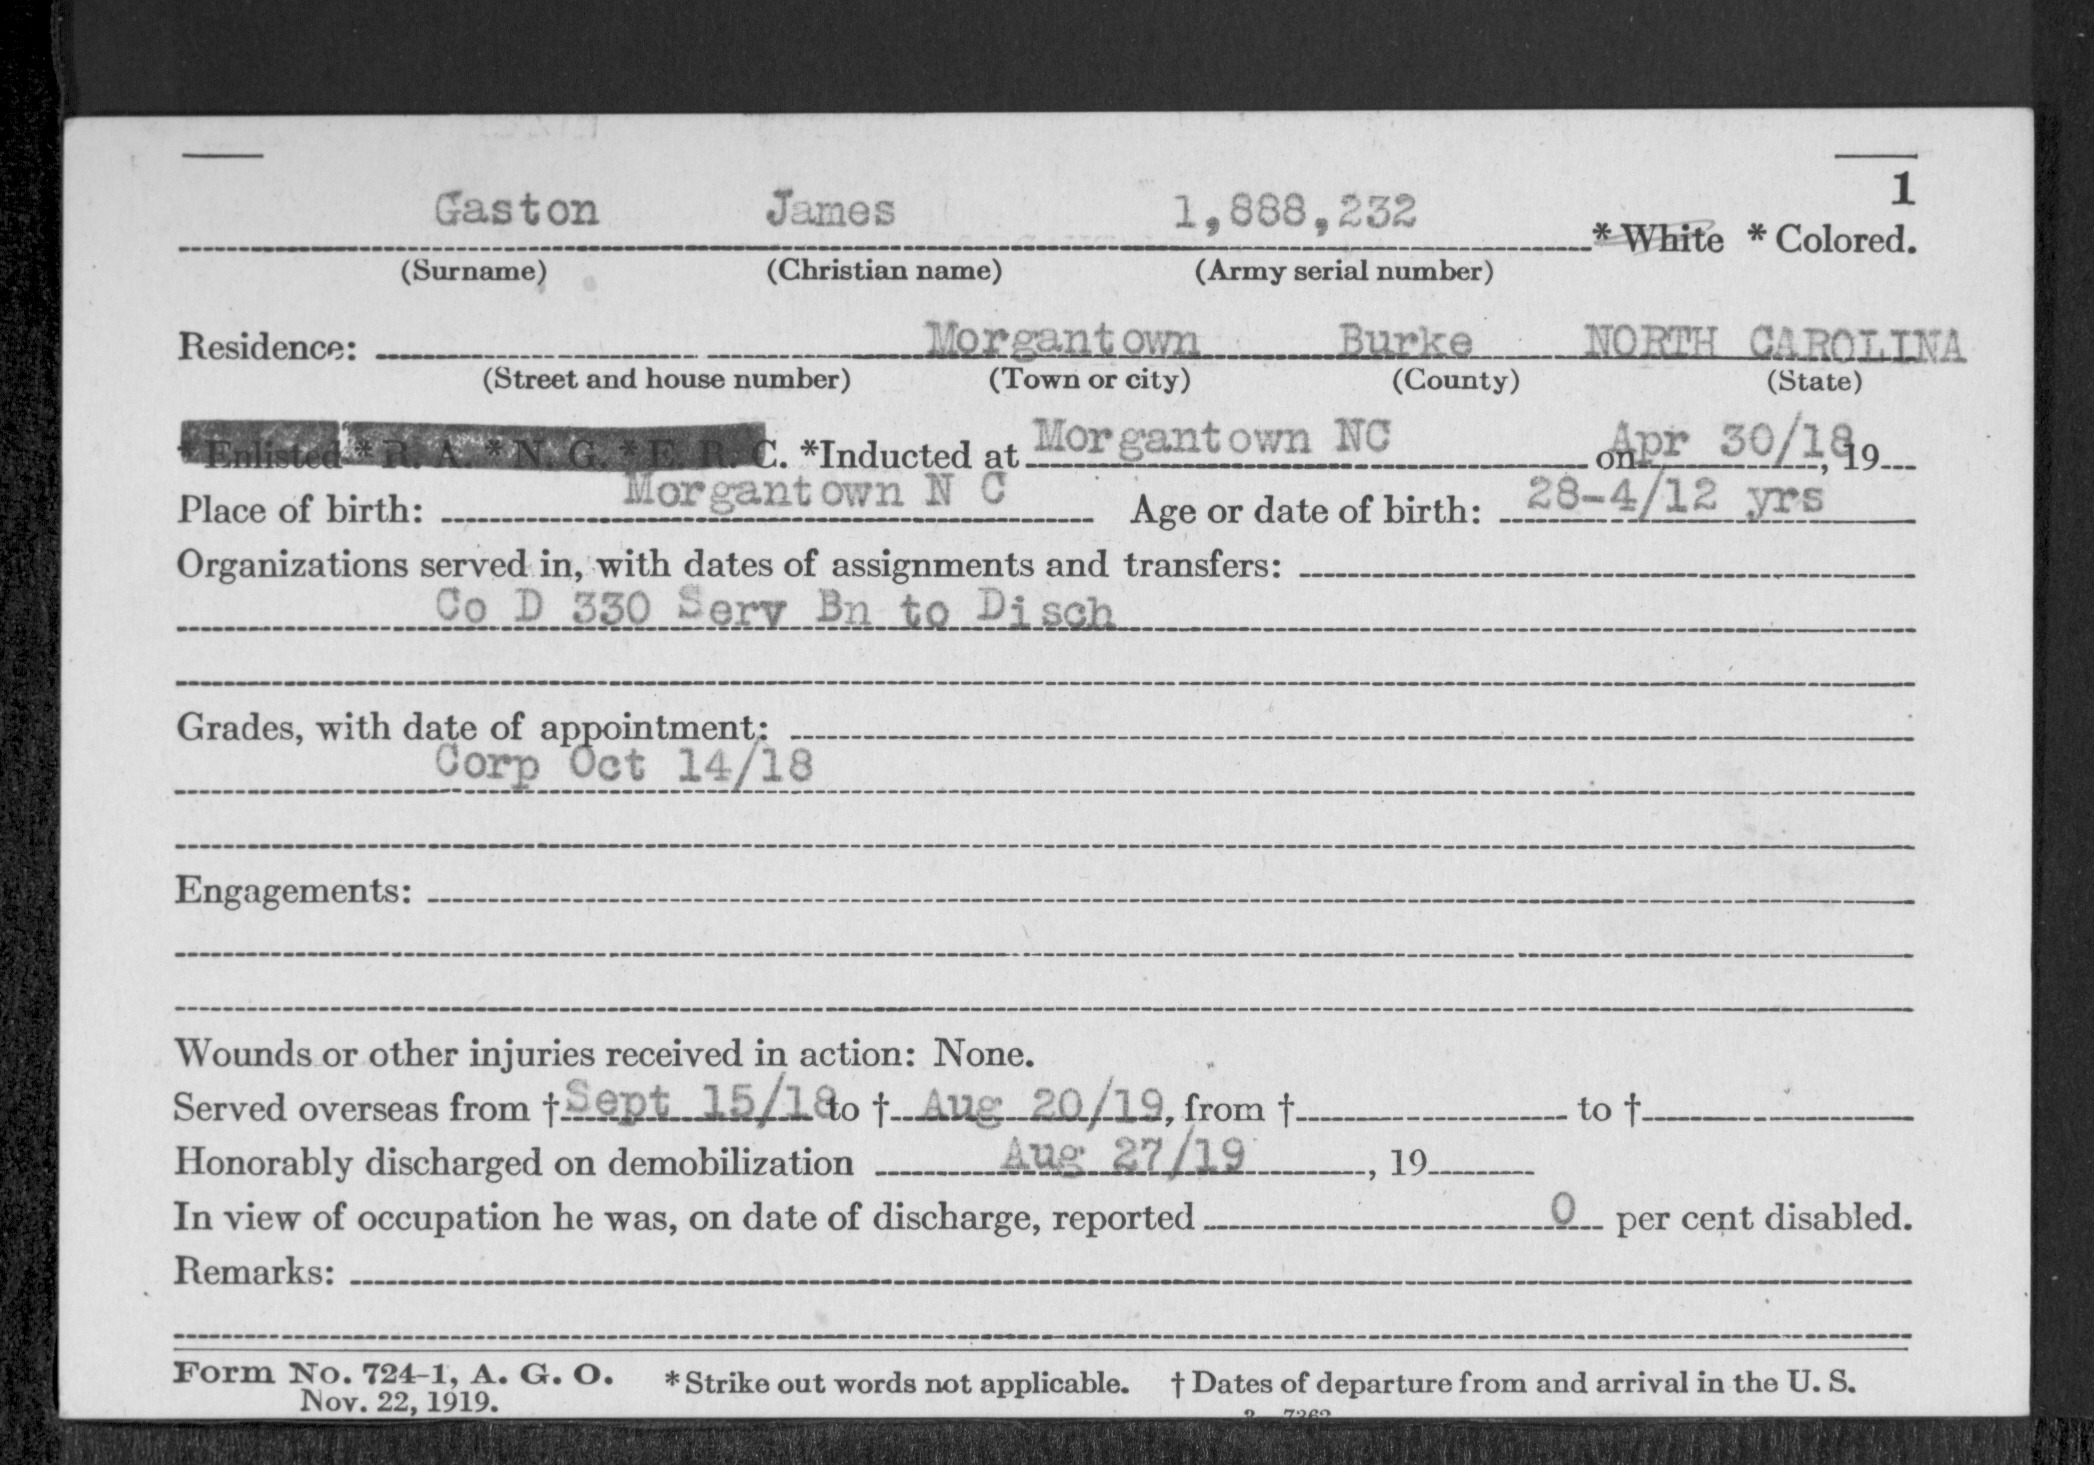 1
Gaston James 1,888,232 *White *Colored.
(Surname) (Christian name) (Army serial number)
Residence: Morgantown Burke NORTH CAROLINA
(Street and house number) (Town or city) (County) (State)
*Enlisted *R. A. *N. G. *E. R. C. *Inducted at Morgantown NC on Apr 30/18, 19
Place of birth: Morgantown N C Age or date of birth: 28-4/12 yrs
Organizations served in, with dates of assignments and transfers:
Co D 330 Serv Bn to Disch
Grades, with date of appointment:
Corp Oct 14/18
Engagements:
Wounds or other injuries received in action: None.
Served overseas from † Sept 15/18 to † Aug 20/19, from † to †
Honorably discharged on demobilization Aug 27/19, 19
In view of occupation he was, on date of discharge, reported 0 per cent disabled.
Remarks:
Form No. 724-1, A. G. O. *Strike out words not applicable. † Dates of departure from and arrival in the U. S.
Nov. 22, 1919.